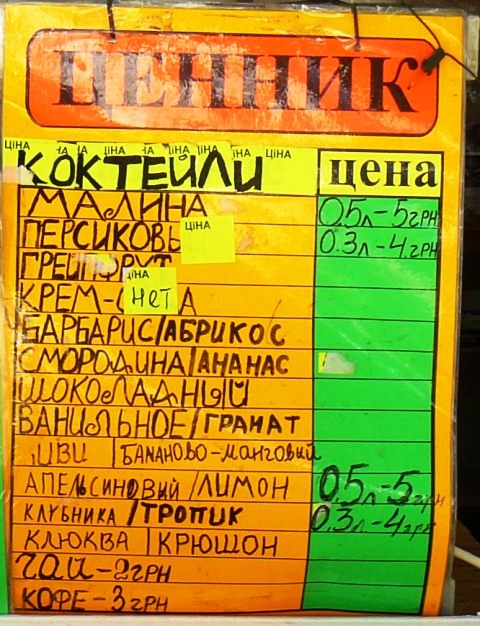 ЦЕННИК
ЦІНА ЦІНА ЦІНА ЦІНА ЦІНА
КОКТЕЙЛИ цена
МАЛИНА 0.5л-5грн
ПЕРСИКОВЫ ЦІНА 0.3л-4грн
ГРЕЙПФРУТ
ЦІНА
КРЕМ- НЕТ А
БАРБАРИС/АБРИКОС
СМОРОДИНА/АНАНАС
ШОКОЛАДНЫЙ
ВАНИЛЬНОЕ/ГРАНАТ
ИВИ |БАНАНОВО-МАНГОВЫЙ
АПЕЛЬСИНОВЫЙ/ЛИМОН 0,5л-5грн
КЛУБНИКА/ТРОПИК 0.3л-4грн
КЛЮКВА|КРЮШОН
ЧАЙ-2ГРН
КОФЕ-3ГРН